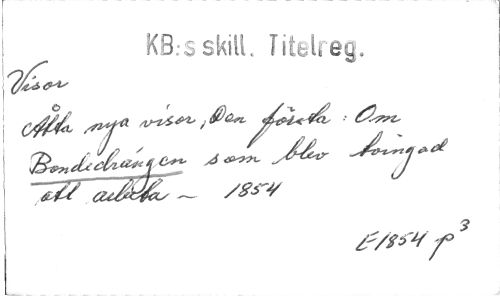 KB:s skill. Titelreg.
Visor
Åtta nya visor, Den första: Om
Bondedrängen som blev tvingad
att arbeta — 1854
E1854 p3